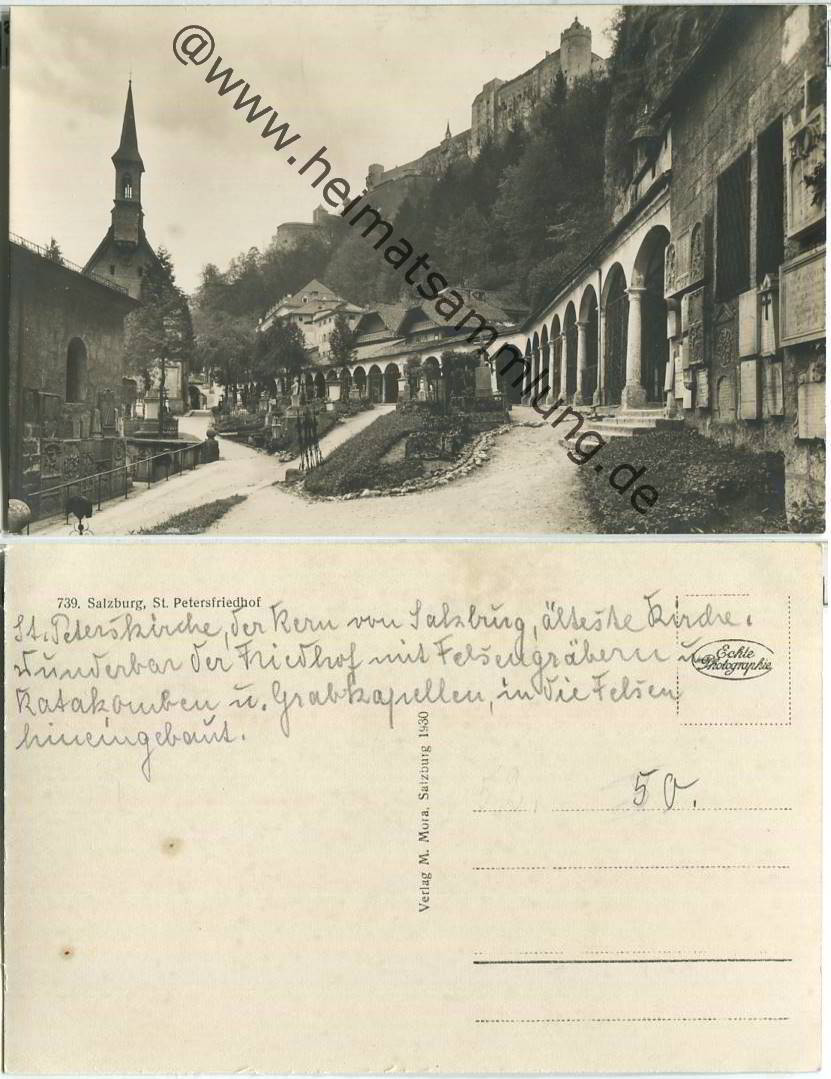 @www.heimatsammlung.de
739. Salzburg, St. Petersfriedhof
St. Peterskirche, der Kern von Salzburg, älteste Kirche.
Wunderbar der Friedhof mit Felsengräbern u.
Katakomben u. Grabkapellen, in die Felsen
hineingebaut.
Echte
Photographie
Verlag M. Mora, Salzburg 1930
50.